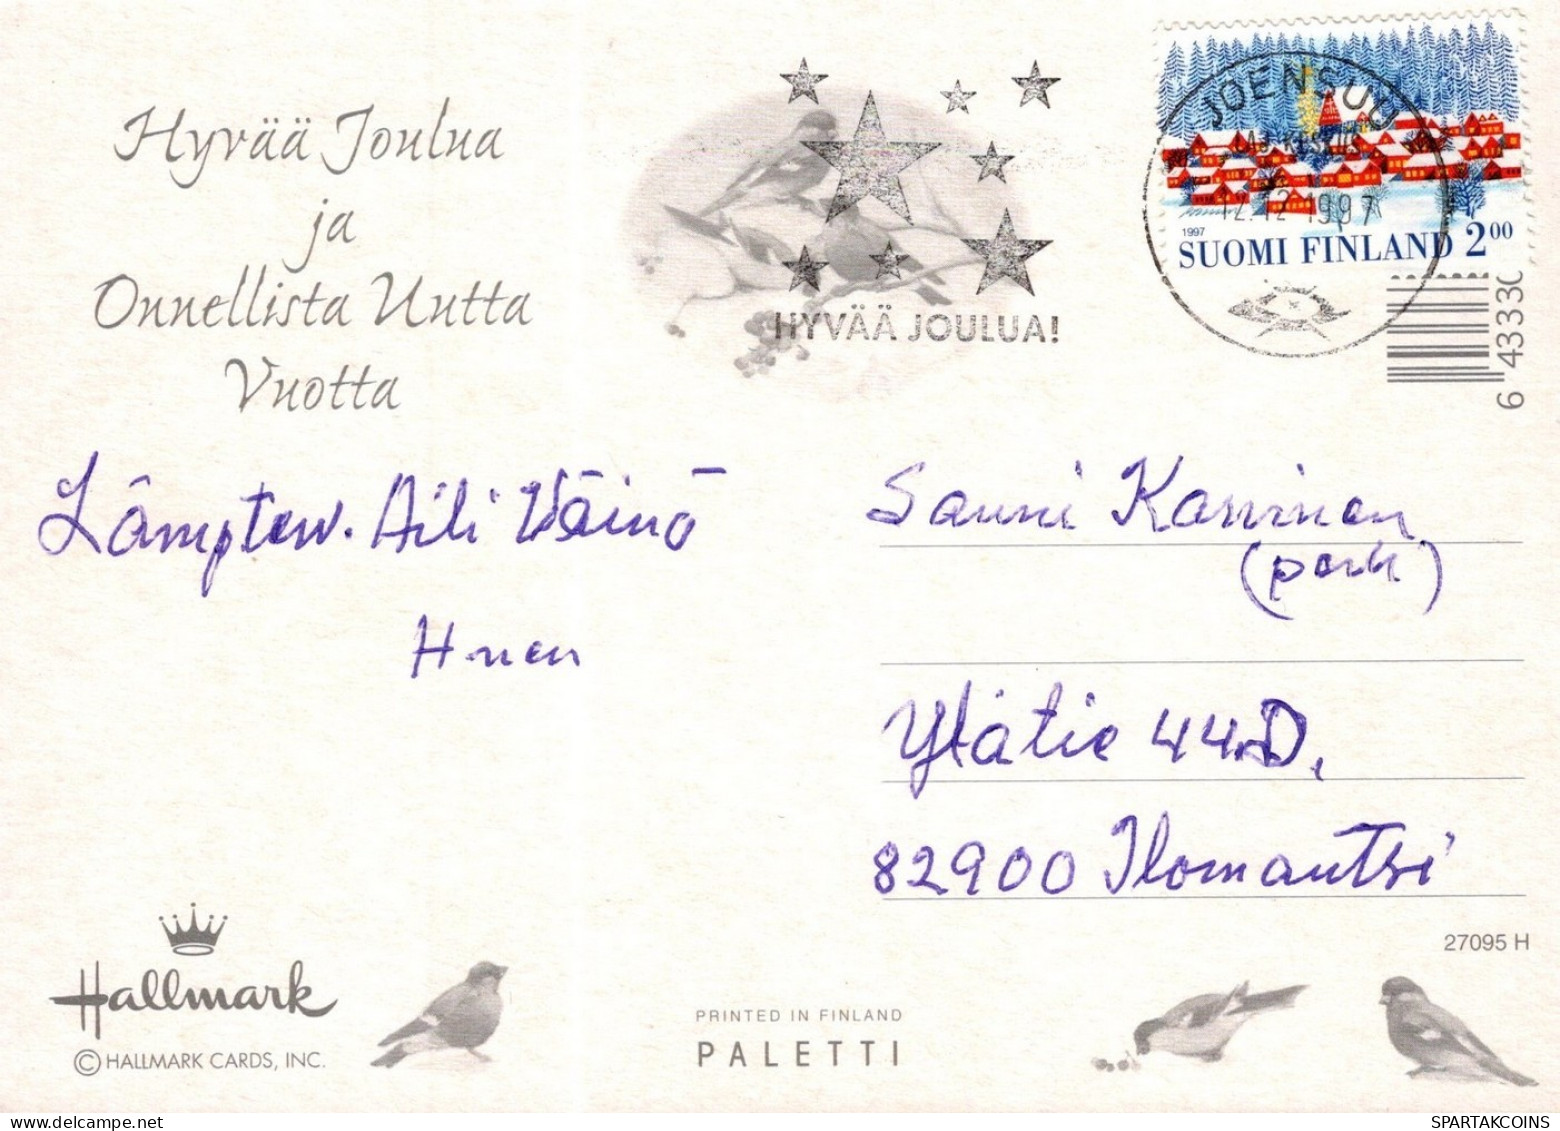 Hyvää Joulua
ja
Onnellista Uutta
Vuotta
HYVÄÄ JOULUA!
JOENSUU
12.12.1997
1997
SUOMI FINLAND 2 00
6 43330
Aili Väinö
H-nen
Sanni Karvinen
(perh)
Ylätie 44.D.
82900 Ilomantsi
27095 H
Hallmark
© HALLMARK CARDS, INC.
PRINTED IN FINLAND
PALETTI
SPARTAKCOINS